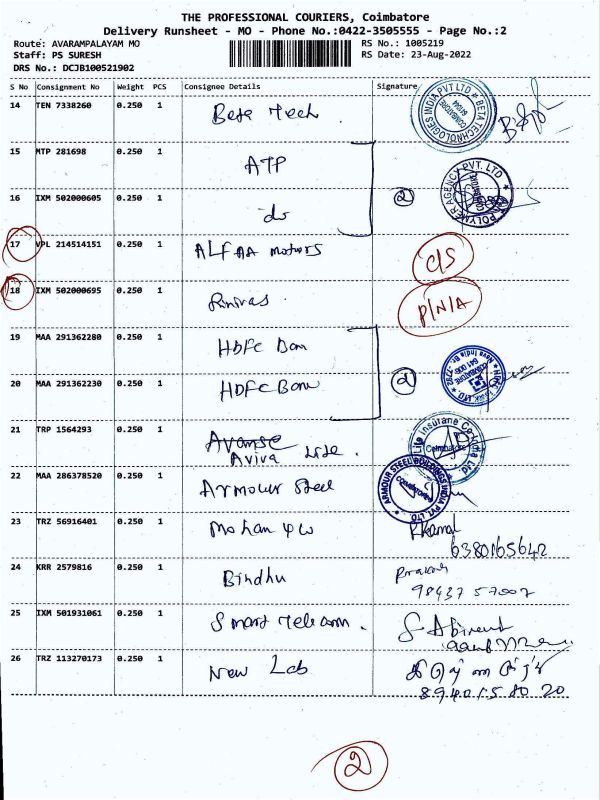 THE PROFESSIONAL COURIERS, Coimbatore
Delivery Runsheet - MO - Phone No.:0422-3505555 - Page No.:2
Route: AVARAMPALAYAM MO RS No.: 1005219
Staff: PS SURESH RS Date: 23-Aug-2022
DRS No.: DCJB100521902
S No Consignment No Weight PCS Consignee Details Signature
14 TEN 7338260 0.250 1 Beta Tech.
BETA TECHNOLOGIES INDIA PVT LTD COIMBATORE
15 MTP 281698 0.250 1 ATP
16 IXM 502000605 0.250 1 do 2
POLYMER AGENCY PVT. LTD
17 VPL 214514151 0.250 1 ALFAA motors C/S
18 IXM 502000695 0.250 1 P/N/A
19 MAA 291362280 0.250 1 HDFC Ban
20 MAA 291362230 0.250 1 HDFC Bank 2
21 TRP 1564293 0.250 1 Aviva Life.
Life Insurance Coimbatore
22 MAA 286378520 0.250 1 Armour Steel
ARMOUR STEEL BUILDINGS INDIA PVT. LTD. COIMBATORE
23 TRZ 56916401 0.250 1 Mohan
6380165642
24 KRR 2579816 0.250 1 Bindhu
98437 57007
25 IXM 501931061 0.250 1 Smart Telecom.
26 TRZ 113270173 0.250 1 New Lab
8940158020
2